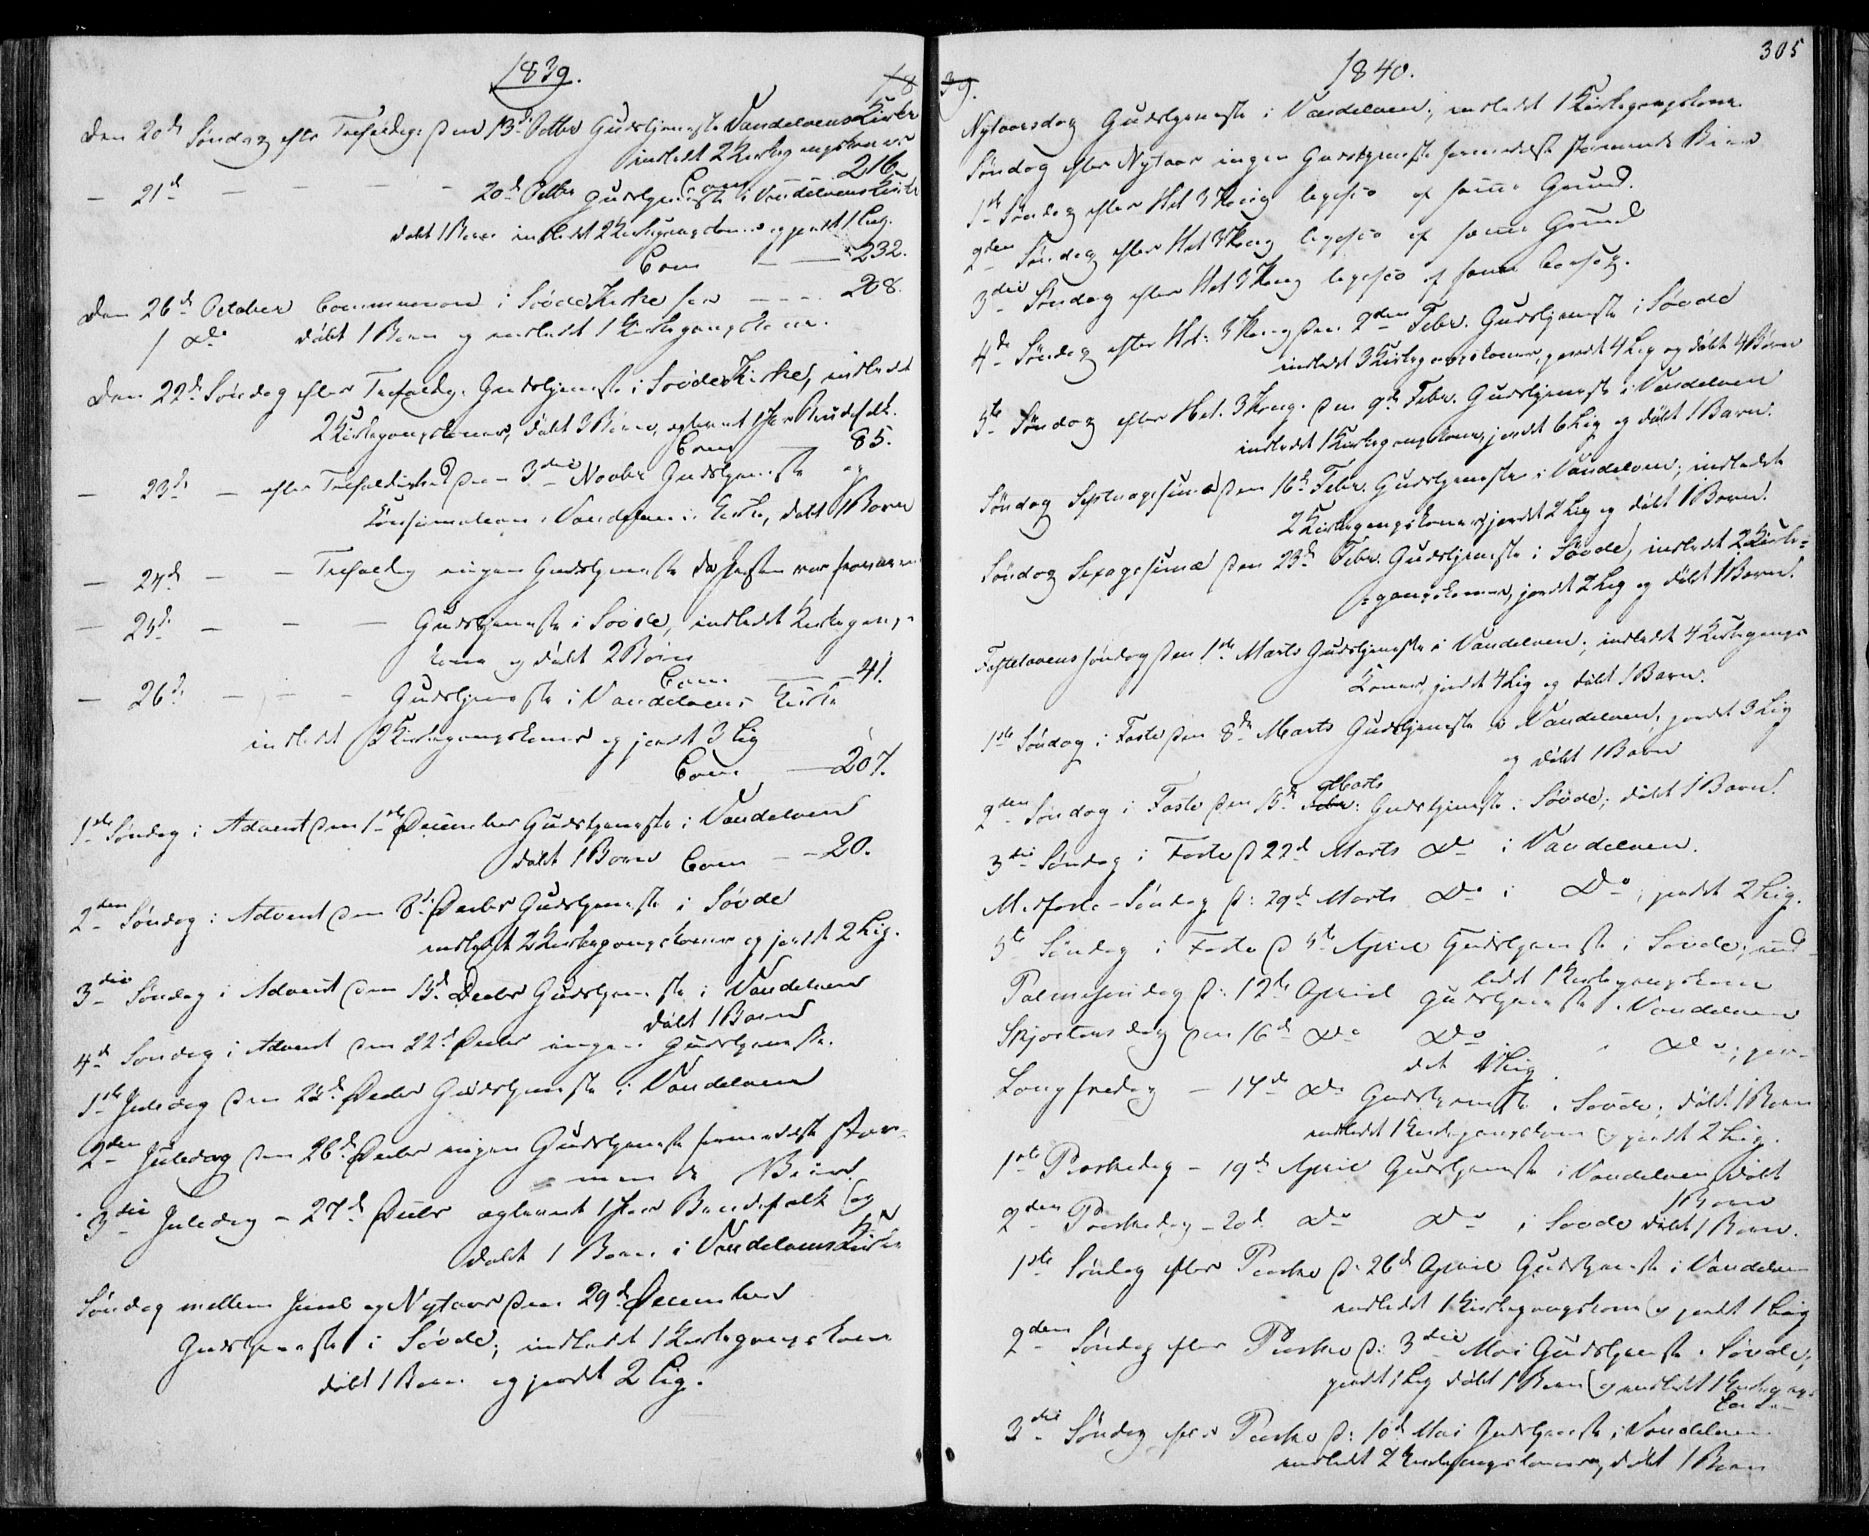 1839.
18
Den 20de Søndag efter Trefoldig: den 13de Octbr Gudstjeneste Vandelvens Kirke
indledt 2 Kirkegangskoner
Com — 216
— 21de — — — — 20de Octbr Gudstjeneste i Vandelvens Kirke
døbt 1 Barn indledt 2 Kirkegangskoner og jordet 1 Lig.
Com — — 232.
Den 26de October Communion i Søvde Kirke for — — — 208.
døbt 1 Barn og indledt 1 Kirkegangskone.
Den 22de Søndag efter Trefoldig. Gudstjeneste i Søvde Kirke, indledt
2 Kirkegangskoner, døbt 3 Børn, egteviet 1 Par Brudefolk.
Com 85.
— 23de — efter Trefoldighed den 3die Novbr Gudstjeneste og
Confirmation i Vandelvens Kirke, døbt 1 Barn
— 24de — — Trefoldig ingen Gudstjeneste da Præsten var
— 25de — — — Gudstjeneste i Søvde, indledt Kirkegangs-
kone og døbt 2 Børn
Com — — 41.
— 26de — — — Gudstjeneste i Vandelvens Kirke
indledt 2 Kirkegangskoner og jordet 3 Lig
Com — 207.
1ste Søndag i Advent den 1ste December Gudstjeneste i Vandelven
døbt 1 Barn Com — — 20.
2den Søndag i Advent den 8de Decbr Gudstjeneste i Søvde
indledt 2 Kirkegangskoner og jordet 2 Lig.
3die Søndag i Advent den 15de Decbr Gudstjeneste i Vandelven
døbt 1 Barn
4de Søndag i Advent den 22de Decbr ingen Gudstjeneste.
1ste Juledag den 25de Decbr Gudstjeneste i Vandelven
2den Juledag den 26de Decbr ingen Gudstjeneste formedelst stor-
mende Veir.
3die Juledag — 27de Decbr egteviet 1 Par Brudefolk og
døbt 1 Barn i Vandelvens Kirke
Søndag mellem Juul og Nytaar den 29de December
Gudstjeneste i Søvde, indledt 1 Kirkegangskone
døbt 1 Barn og jordet 2 Lig.
305
39.
1840.
Nytaarsdag Gudstjeneste i Vandelven, indledt 1 Kirkegangskone
Søndag efter Nytaar ingen Gudstjeneste formedelst stormende Veir
1ste Søndag efter Hel 3 Kong ligesaa af samme Grund.
2den Søndag efter Hel 3 Kong ligesaa af samme Grund
3die Søndag efter Hel 3 Kong ligesaa af samme Aarsag.
4de Søndag efter Hel: 3 Kong den 2den Febr. Gudstjeneste i Søvde
indledt 3 Kirkegangskoner, jordet 4 Lig og døbt 4 Børn
5te Søndag efter Hel. 3 Kong. den 9de Febr. Gudstjeneste i Vandelven
indledt 1 Kirkegangskone, jordet 6 Lig og døbt 1 Barn.
Søndag Septuagesima den 16de Febr. Gudstjeneste i Vandelven; indledt
2 Kirkegangskoner, jordet 2 Lig og døbt 1 Barn.
Søndag Sexagesima den 23de Febr. Gudstjeneste i Søvde, indledt 2 Kirke=
=gangskoner, jordet 2 Lig og døbt 1 Barn.
Fastelavens søndag den 1ste Marts Gudstjeneste i Vandelven, indledt 4 Kirkegangs-
Koner, jordet 4 Lig og døbt 1 Barn.
1ste Søndag i Faste den 8de Marts Gudstjeneste i Vandelven, jordet 3 Lig
og døbt 1 Barn
Marts
2den Søndag i Faste den 15de Febr: Gudstjeneste i Søvde, døbt 1 Barn.
3die Søndag i Faste d 22de Marts Do i Vandelven.
Midfaste-Søndag d: 29de Marts Do i Do; jordet 2 Lig.
5te Søndag i Faste d 5te April Gudstjeneste i Søvde; ind-
ledt 1 Kirkegangskone
Palmesøndag d: 12te April Gudstjeneste i Vandelven
Skjertorsdag den 16de Do Do i Do; jor-
det 1 Lig
Langfredag — 17de Do Gudstjeneste i Søvde; døbt 1 Barn
indledt 1 Kirkegangskone og jordet 2 Lig.
1ste Paaskedag — 19de April Gudstjeneste i Vandelven døbt
1 Barn
2den Paaskedag — 20de Do Do i Søvde døbt 1 Barn.
1ste Søndag efter Paaske d: 26de April Gudstjeneste i Vandelven
indledt 1 Kirkegangskone og jordet 1 Lig
2den Søndag efter Paaske d: 3die Mai Gudstjeneste i Søvde,
jordet 1 Lig døbt 1 Barn og indledt 1 Kirkegangs-
kone
3die Søndag efter Paaske d: 10de Mai Gudstjeneste i Vandelven
indledt 2 Kirkegangskoner, døbt 1 Barn